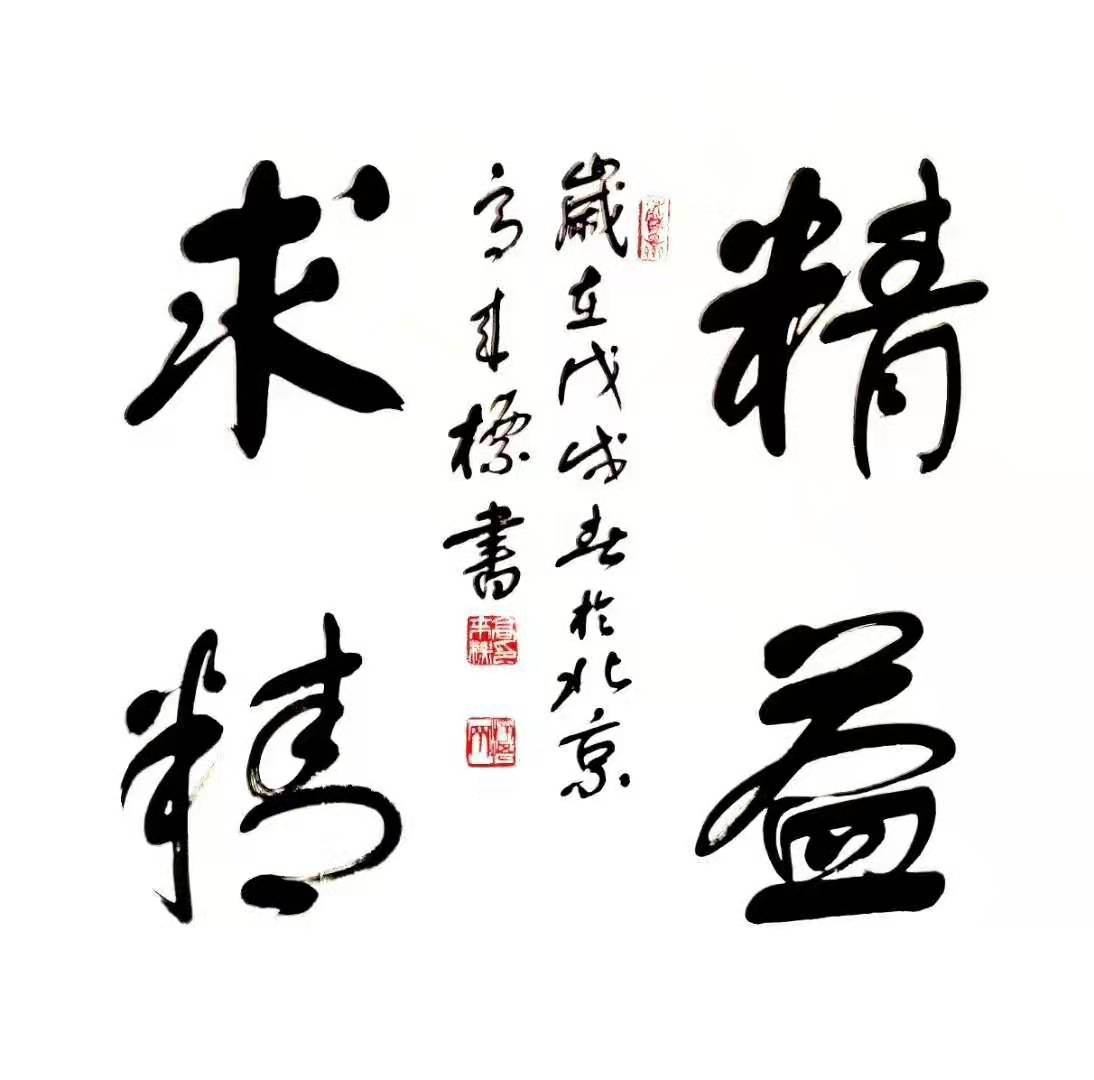 精益
求精
歲在戊戌春於北京
高来標書